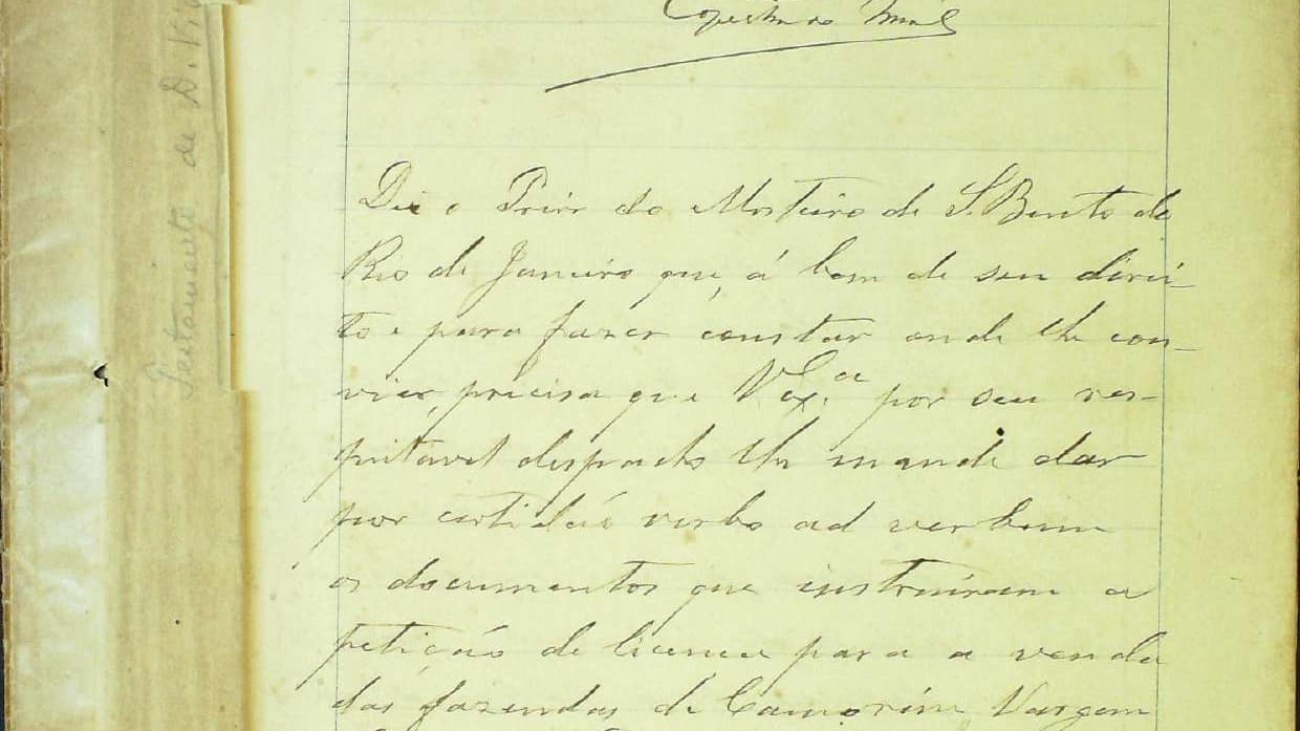 Testamento de D.
Diz o Prior do Mosteiro de S. Bento do
Rio de Janeiro que, á bem de seu direi-
to e para fazer constar onde lhe con-
vier, precisa que V. Ex.ª por seu res-
peitavel despacho lhe mande dar
por certidão verbo ad verbum
os documentos que instruiram a
petição de licença para a venda
das fazendas de Camorim Vargem